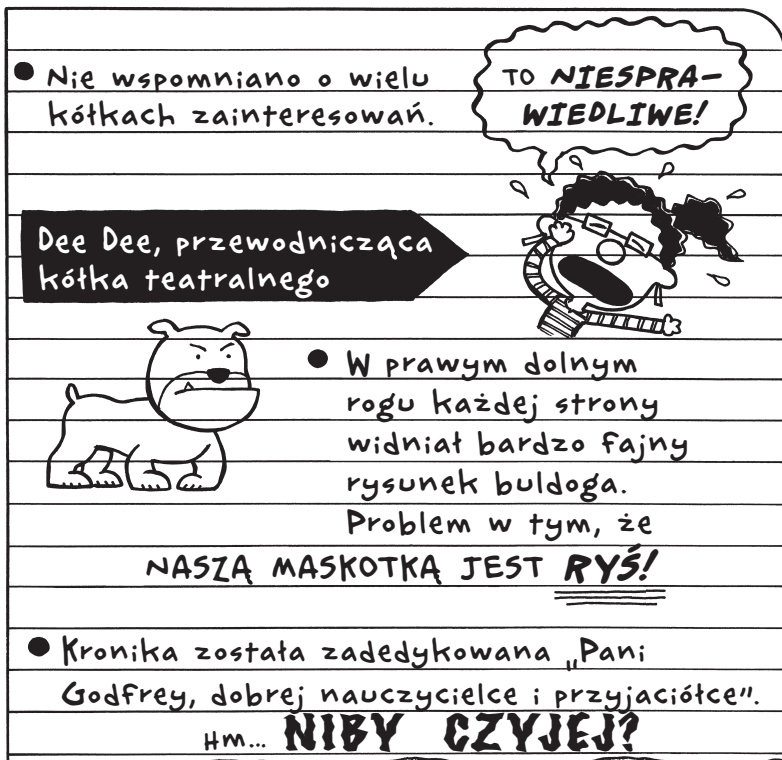 • Nie wspomniano o wielu
kółkach zainteresowań.
TO NIESPRA-
WIEDLIWE!
Dee Dee, przewodnicząca
kółka teatralnego
• W prawym dolnym
rogu każdej strony
widniał bardzo fajny
rysunek buldoga.
Problem w tym, że
NASZĄ MASKOTKĄ JEST RYŚ!
• Kronika została zadedykowana „Pani
Godfrey, dobrej nauczycielce i przyjaciółce”.
Hm... NIBY CZYJEJ?